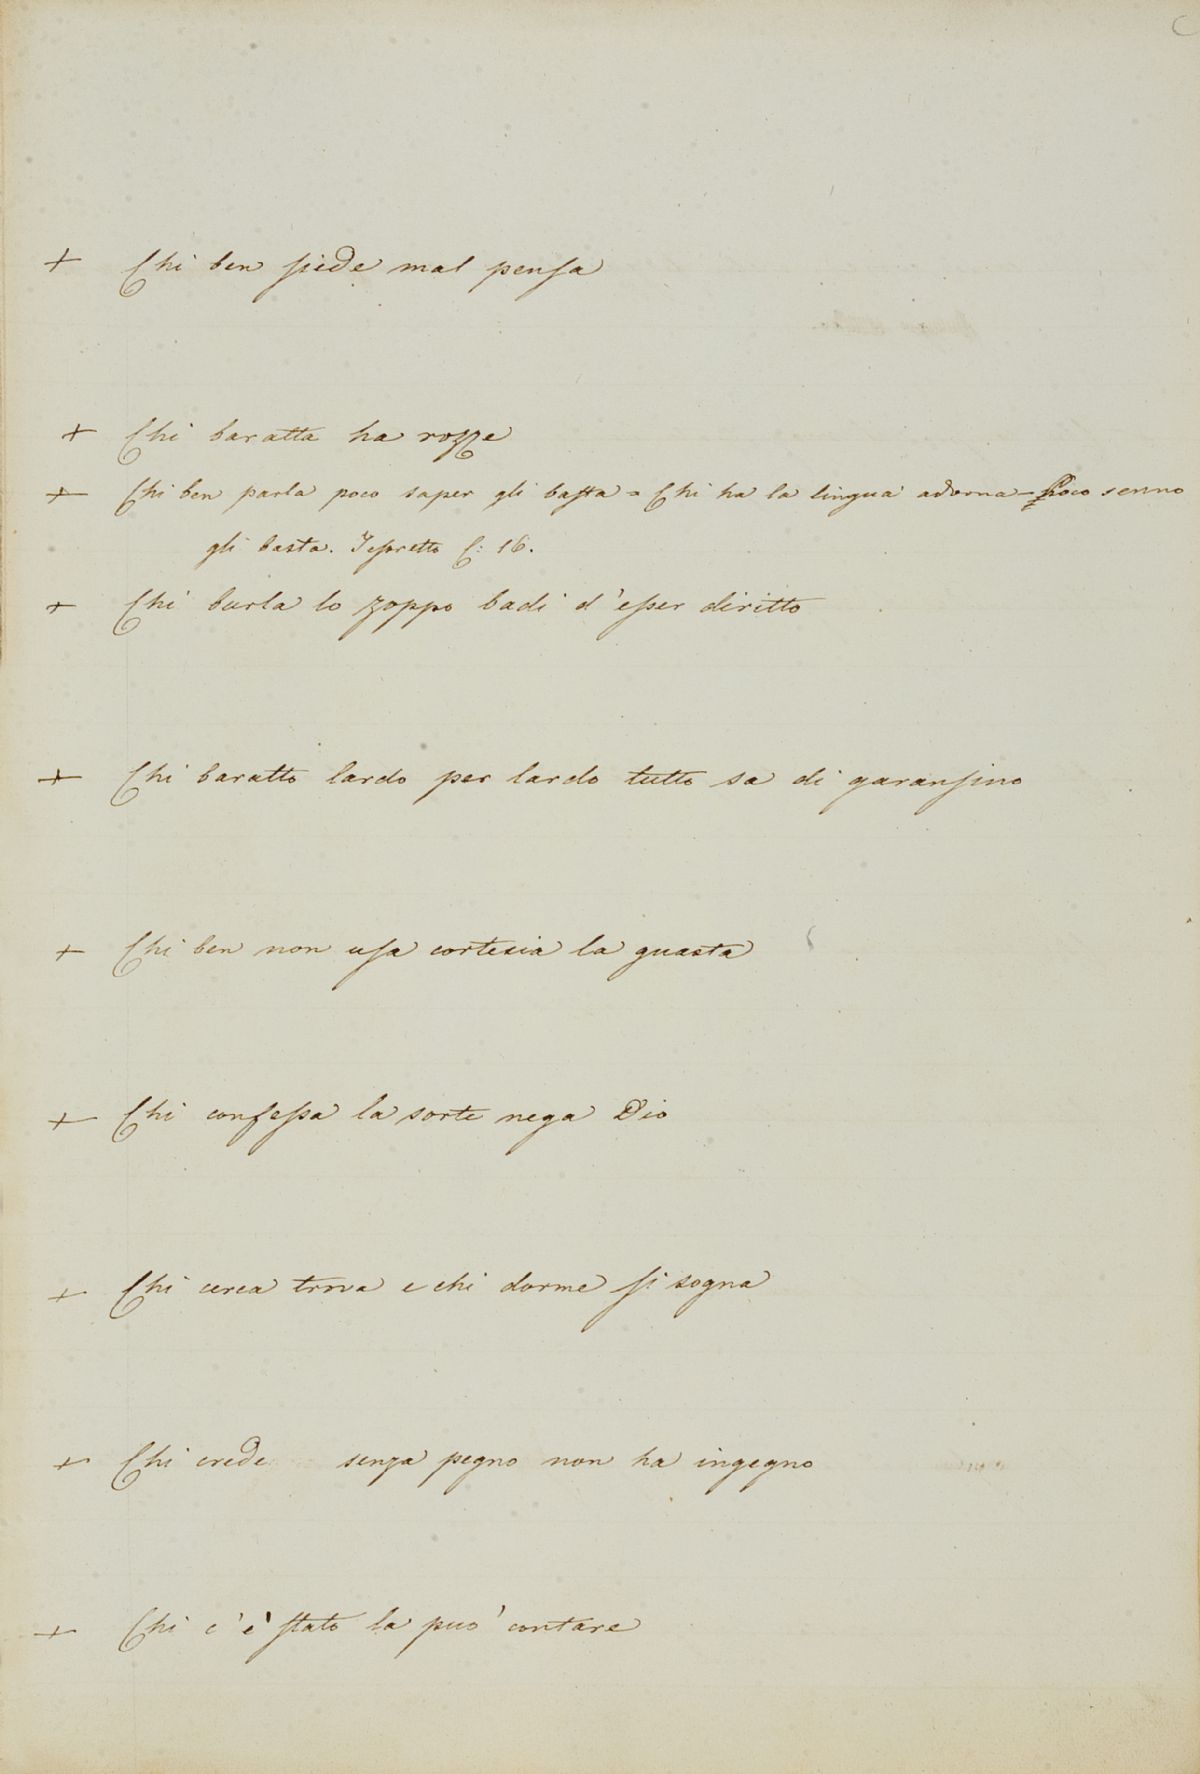 C
+ Chi ben siede mal pensa
+ Chi baratta ha rozze
+ Chi ben parla poco saper gli basta = Chi ha la lingua adorna - Poco senno
gli basta. Tesoretto C: 16.
+ Chi burla lo zoppo badi d'esser diritto
+ Chi baratto lardo per lardo tutto sa di garansino
+ Chi ben non usa cortesia la guasta
+ Chi confessa la sorte nega Dio
+ Chi cerca trova e chi dorme si sogna
+ Chi crede senza pegno non ha ingegno
+ Chi c'è stato la può contare